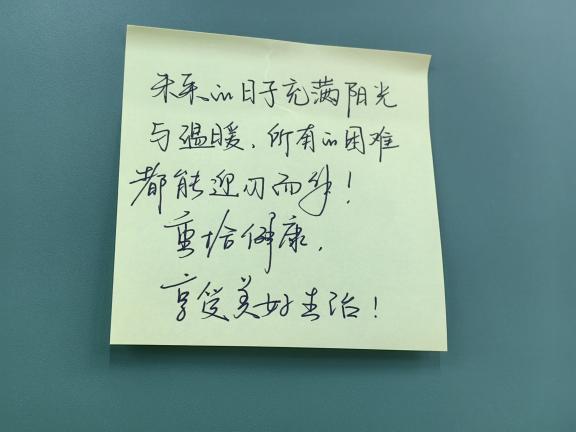 未来的日子充满阳光
与温暖，所有的困难
都能迎刃而解！
重拾健康，
享受美好生活！